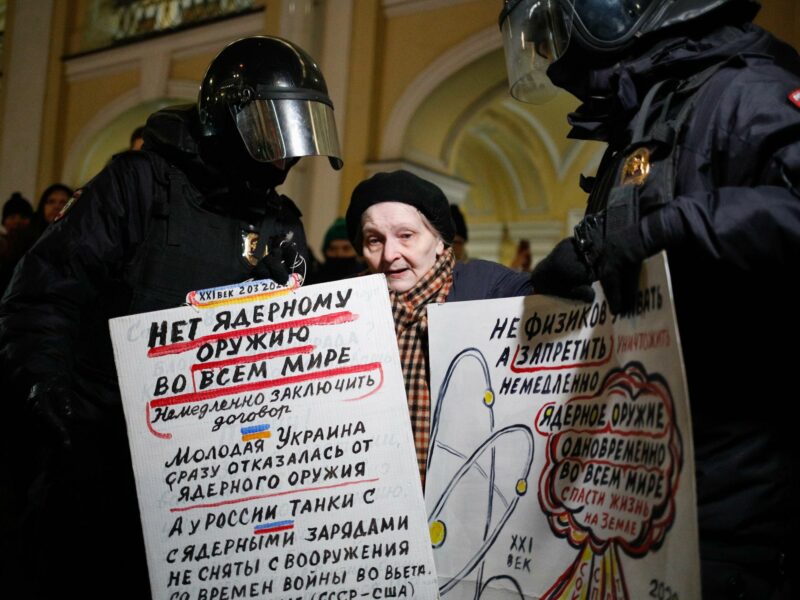 XXI ВЕК 2.03.202
НЕТ ЯДЕРНОМУ
ОРУЖИЮ
ВО ВСЕМ МИРЕ
НЕМЕДЛЕННО ЗАКЛЮЧИТЬ
ДОГОВОР
МОЛОДАЯ УКРАИНА
СРАЗУ ОТКАЗАЛАСЬ ОТ
ЯДЕРНОГО ОРУЖИЯ
А У РОССИИ ТАНКИ С
С ЯДЕРНЫМИ ЗАРЯДАМИ
НЕ СНЯТЫ С ВООРУЖЕНИЯ
СО ВРЕМЕН ВОЙНЫ ВО ВЬЕТА.
(СССР-США)
НЕ ФИЗИКОВ
А ЗАПРЕТИТЬ УНИЧТОЖИТЬ
НЕМЕДЛЕННО
ЯДЕРНОЕ ОРУЖИЕ
ОДНОВРЕМЕННО
ВО ВСЕМ МИРЕ
СПАСТИ ЖИЗНЬ
НА ЗЕМЛЕ
XXI
ВЕК